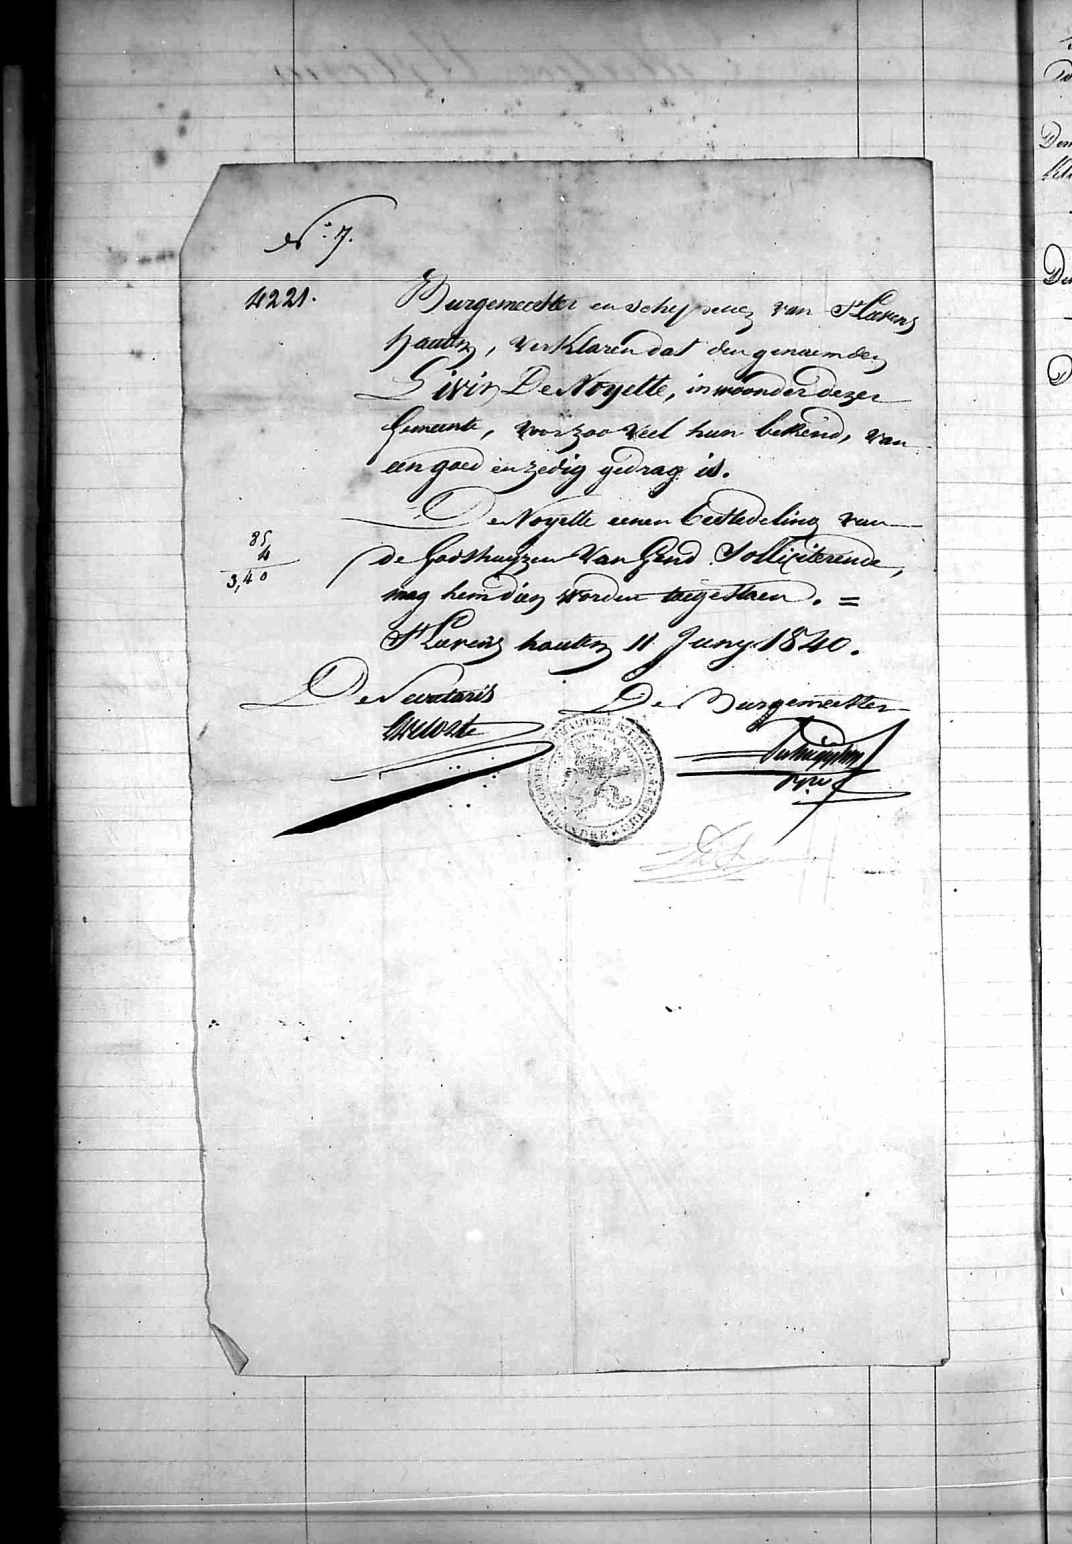 N° 7.
4221.
Burgemeester en schepenen van St Laurens
hautem, verklaren dat den genaemden
Livin De Noyette, inwoonder dezer
Gemeente, voor zoo veel hun bekend, van
een goed en zedig gedrag is.
De Noyette eenen bestedeling van
de Godshuyzen van Gend Solliciterende,
mag hem dien worden toegestaen. =
85
4
3,40
St Laurens hautem 11 Juny 1840.
De Secretaris
De Burgemeester